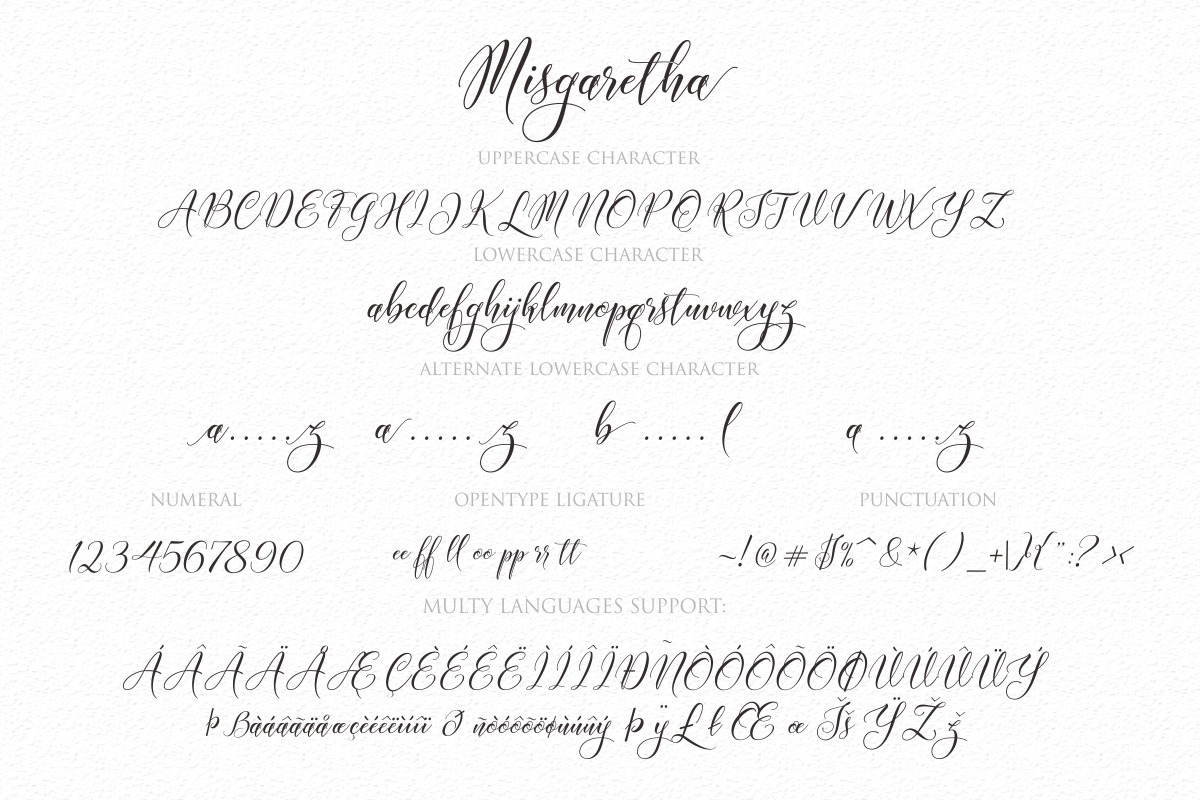 Misgaretha
UPPERCASE CHARACTER
ABCDEFGHIJKLMNOPQRSTUVWXYZ
LOWERCASE CHARACTER
abcdefghijklmnopqrstuvwxyz
ALTERNATE LOWERCASE CHARACTER
a.....z a.....z b.....l a.....z
NUMERAL OPENTYPE LIGATURE PUNCTUATION
1234567890 ee ff ll oo pp rr tt ~!@#$%^&*()_+|}{":?><
MULTY LANGUAGES SUPPORT:
ÁÂÃÄÅÆÇÈÉÊËÌÍÎÏÐÑÒÓÔÕÖØÙÚÛÜÝ
Þ ßàáâãäåæçèéêëìíîï ð ñòóôõöøùúûý þ ÿ Ł ł Œ œ Šš Ÿ Ž ž